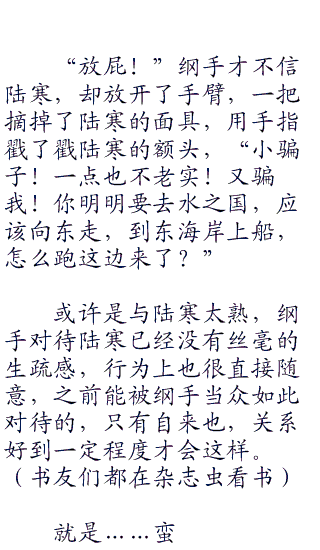 “放屁！”纲手才不信
陆寒，却放开了手臂，一把
摘掉了陆寒的面具，用手指
戳了戳陆寒的额头，“小骗
子！一点也不老实！又骗
我！你明明要去水之国，应
该向东走，到东海岸上船，
怎么跑这边来了？”
或许是与陆寒太熟，纲
手对待陆寒已经没有丝毫的
生疏感，行为上也很直接随
意，之前能被纲手当众如此
对待的，只有自来也，关系
好到一定程度才会这样。
（书友们都在杂志虫看书）
就是……蛮